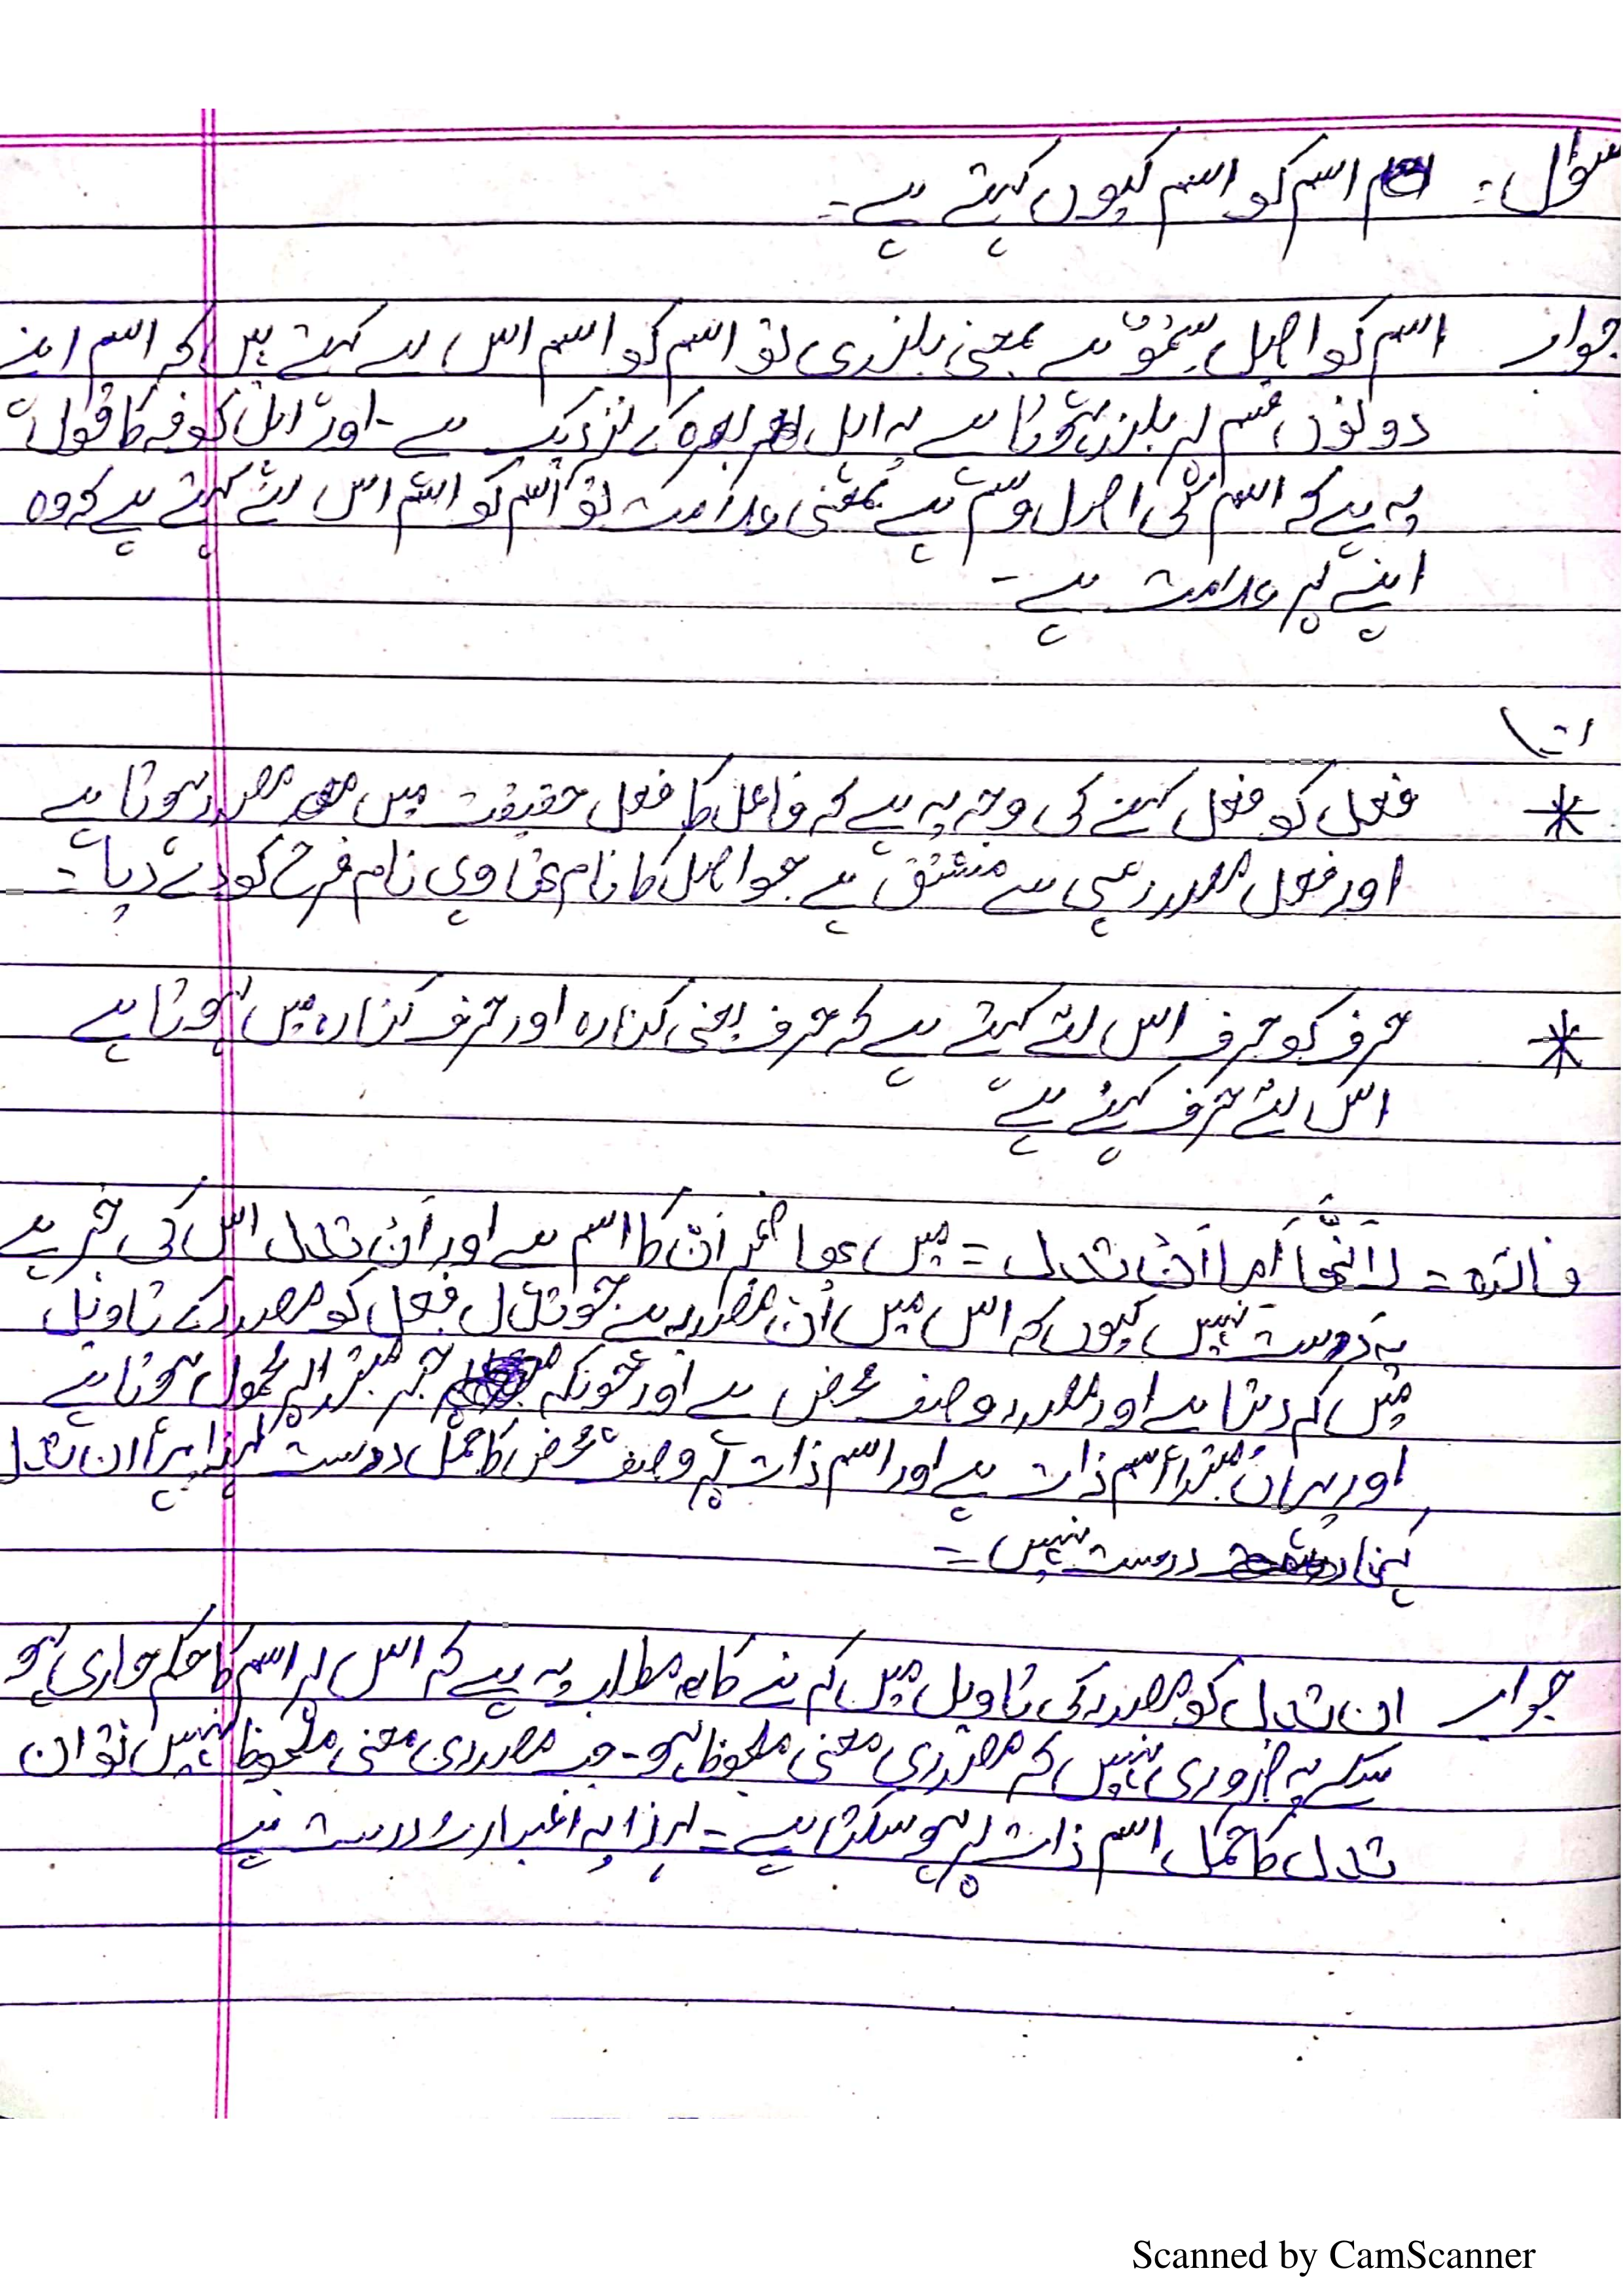 سؤال: اسم کو اسم کیوں کہتے ہے۔
جواب اسم کو اصل سِمْوٌ ہے بمعنی بلندی تو اسم کو اسم اس سے کہتے ہیں کہ اسم اپنے
دونوں قسم پر بلند ہوتا ہے یہ اہل بصرہ کے نزدیک ہے۔ اور اہل کوفہ کا قول
یہ ہے کہ اسم کی اصل وسم ہے بمعنی علامت تو اسم کو اسم اس لئے کہتے ہے کہ وہ
اپنے پر علامت ہے۔
* فعل کو فعل کہنے کی وجہ یہ ہے کہ فاعل کا فعل حقیقت میں مصدر ہوتا ہے
اور فعل مصدر ہی سے مشتق ہے جو اصل کا نام تھا وہی نام فرع کو دے دیا۔
* حرف کو حرف اس لئے کہتے ہے کہ حرف بمعنی کنارہ اور حرف کنارہ میں ہوتا ہے
اس لئے حرف کہتے ہے
فائدہ = لِاَنَّھَا اَما اَنْ تدل = میں ھا ضمیر اَنّ کا اسم ہے اور اَن تدل اس کی خبر ہے
یہ درست نہیں کیوں کہ اس میں اَن مصدریہ ہے جو تدل فعل کو مصدر کے تاویل
میں کر دیتا ہے اور مصدر وصف محض ہے اور چونکہ خبر مبتدا پر محمول ہوتا ہے
اور یہاں مبتدا اسم ذات ہے اور اسم ذات پر وصف محض کا حمل درست لہذا ان تدل
کہنا درست نہیں =
جواب ان تدل کو مصدر کی تاویل میں کرنے کا مطلب یہ ہے کہ اس پر اسم کا حکم جاری ہو
سکے یہ ضروری نہیں کہ مصدری معنی ملحوظ ہو۔ جب مصدری معنی ملحوظ نہیں تو ان
تدل کا حمل اسم ذات پر ہو سکتی ہے = لہذا یہ درست ہے
Scanned by CamScanner